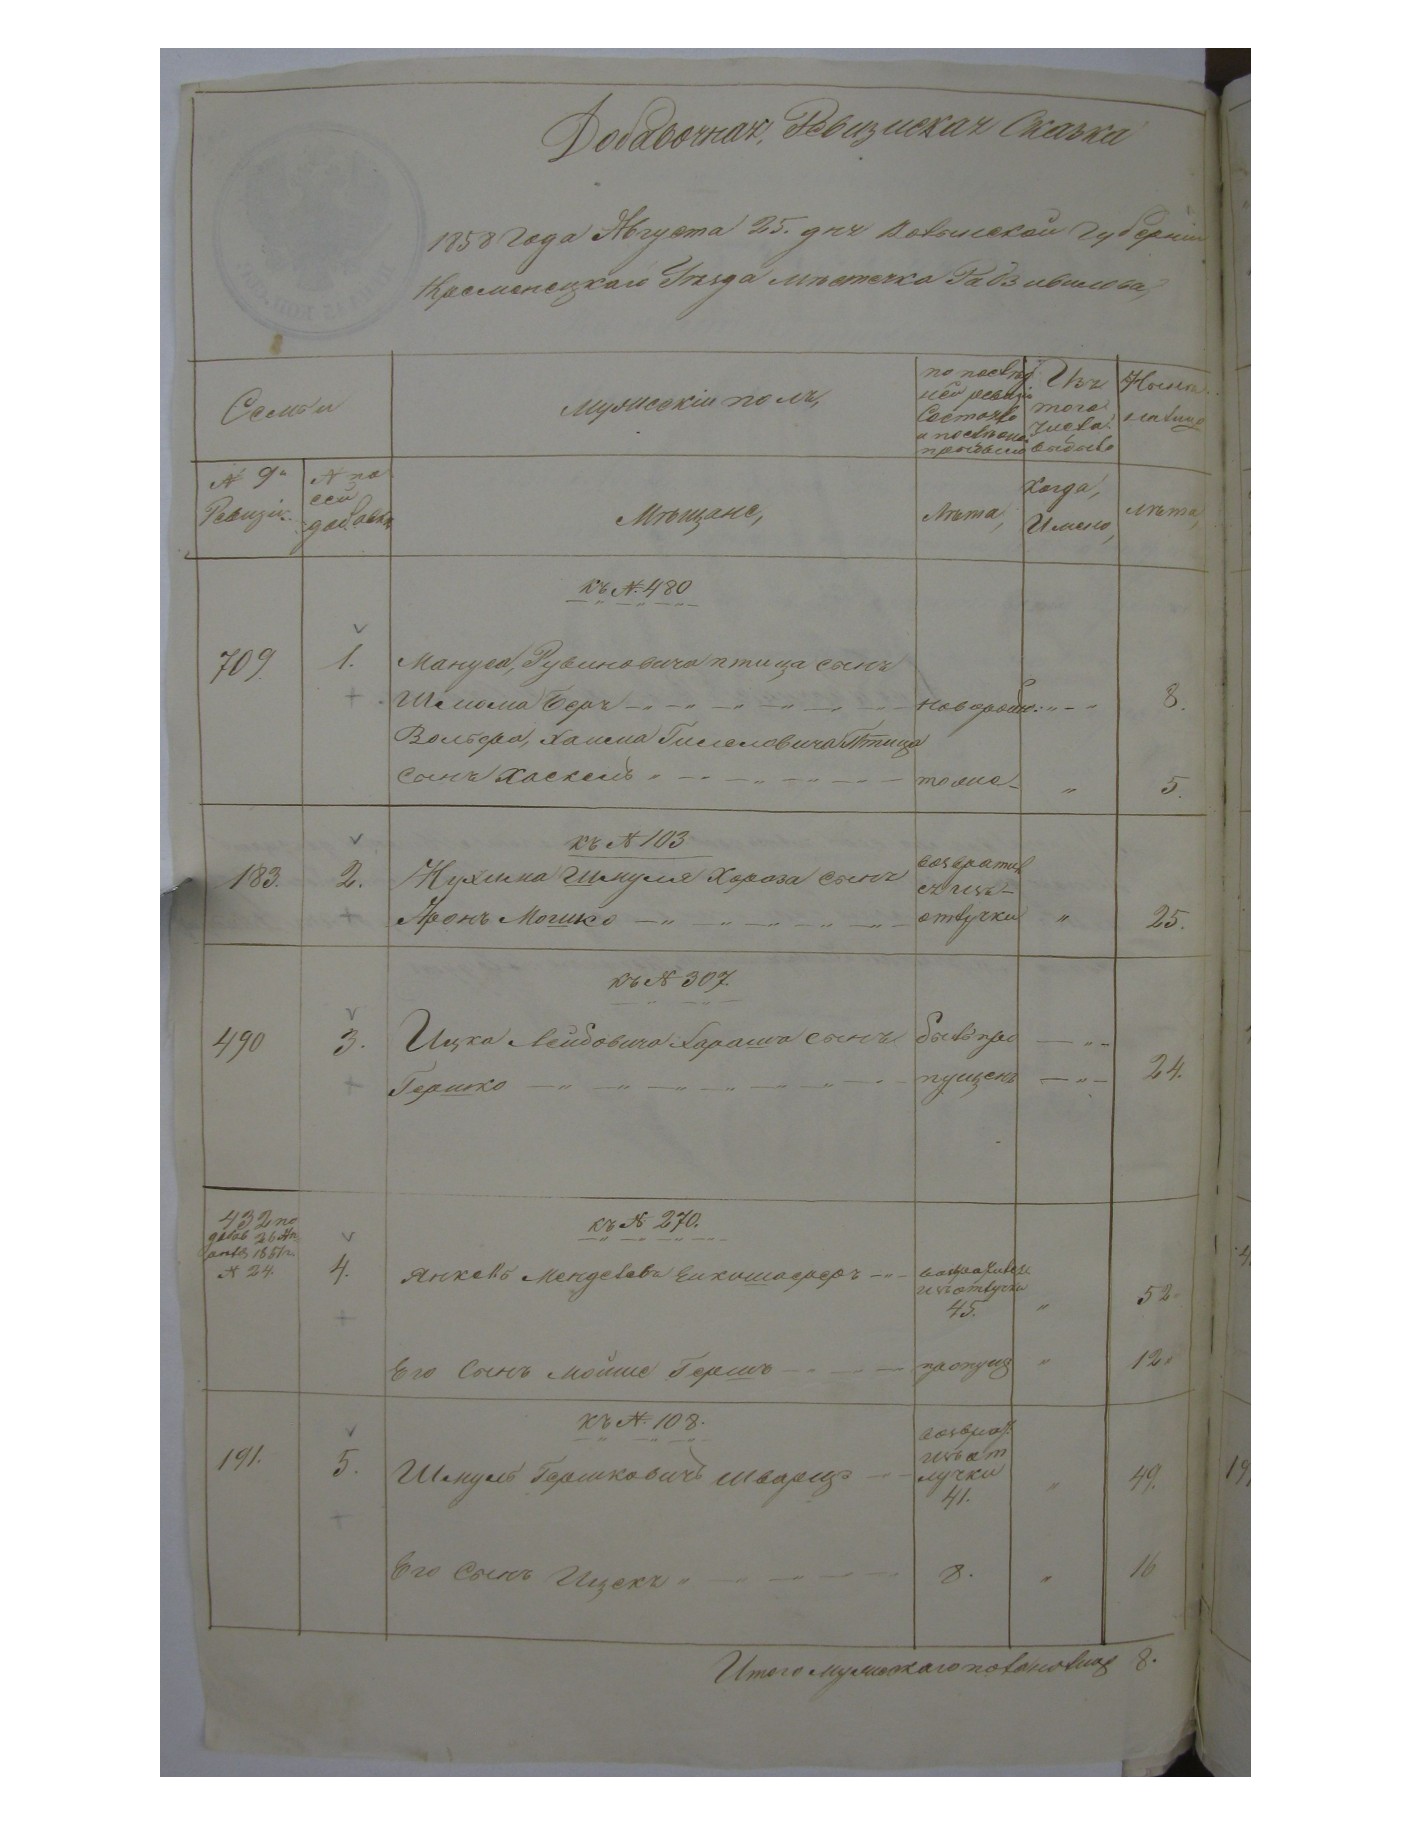 Добавочная, Ревизская Сказка
1858 Года Августа 25. дня Волынской Губерніи
Кременецкаго Уѣзда мѣстечка Радзивилова,
Семьи
Мужескій полъ,
по послѣд
ней ревизіи
Состояло
и послѣ того
прибыло
Изъ
того
числа
выбыло
Нынѣ
на лицо
№ 9й
Ревизіи
№ по
сей
добавк.
Мѣщане,
Лѣта,
Когда,
Имено,
лѣта,
къ № 480
709. 1. Мануса, Рувиновича птица сынъ
Шлиома Беръ новорожд: 8.
Вольфа, Хаима Гилеловича Птица
сынъ Хаскель тоже 5.
къ № 103
183. 2. Нухима Шмуля Хороза сынъ возратив
ся изъ
Аронъ Мошко отлучки 25.
къ № 307.
490 3. Ицка Лейбовича Хараша сынъ былъ про
Гершко пущенъ 24.
432 по
добав 26 Ап
1851 г.
№ 24.
къ № 270.
4. Янкель Менделевъ возратився
изъ отлучки
45. 52
Его Сынъ Мойше Гершъ пропущ 12
къ № 108.
191. 5. Шмуль Гершковичъ Шварцъ возврат.
изъ от
лучки
41. 49.
Его Сынъ Ицекъ 8. 16
Итого мужескаго пола на лицо 8.